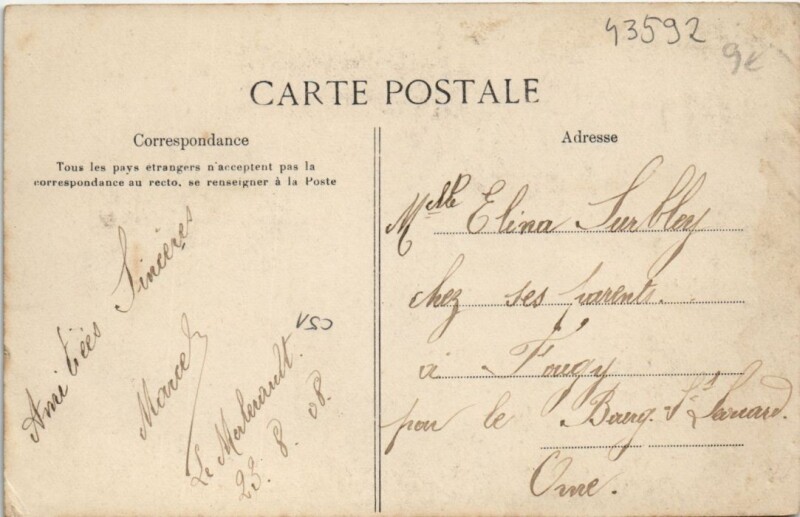 43592
9€
CARTE POSTALE
Correspondance
Tous les pays étrangers n'acceptent pas la
correspondance au recto, se renseigner à la Poste
Amitiées Sincères
Marcel
Le Merlerault.
23. 8. 08.
VSO
Adresse
Melle Elina Surbley
chez ses parents.
à Fougy
par le Bourg-St Léonard.
Orne.